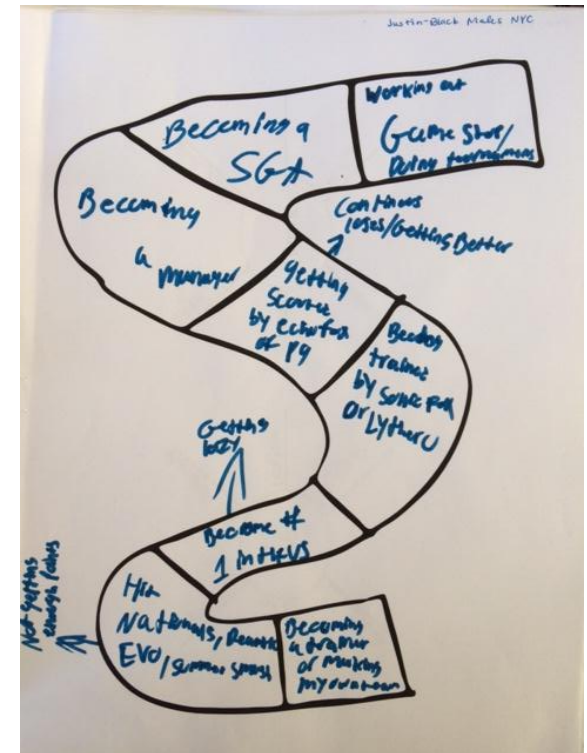 Justin-Black Males NYC
Working at
Game Stop/
Doing tournaments
Becoming a
SGA
Becoming
a manager
Continuous
loses/Getting Better
getting
by echofox
or PG
trained
by Sonic Fox
or
Getting
lazy
Become #
1 in the US
Hit
Nationals/
EVO/Summer Smash
Not getting
enough
Becoming
a trainer
or making
my own team